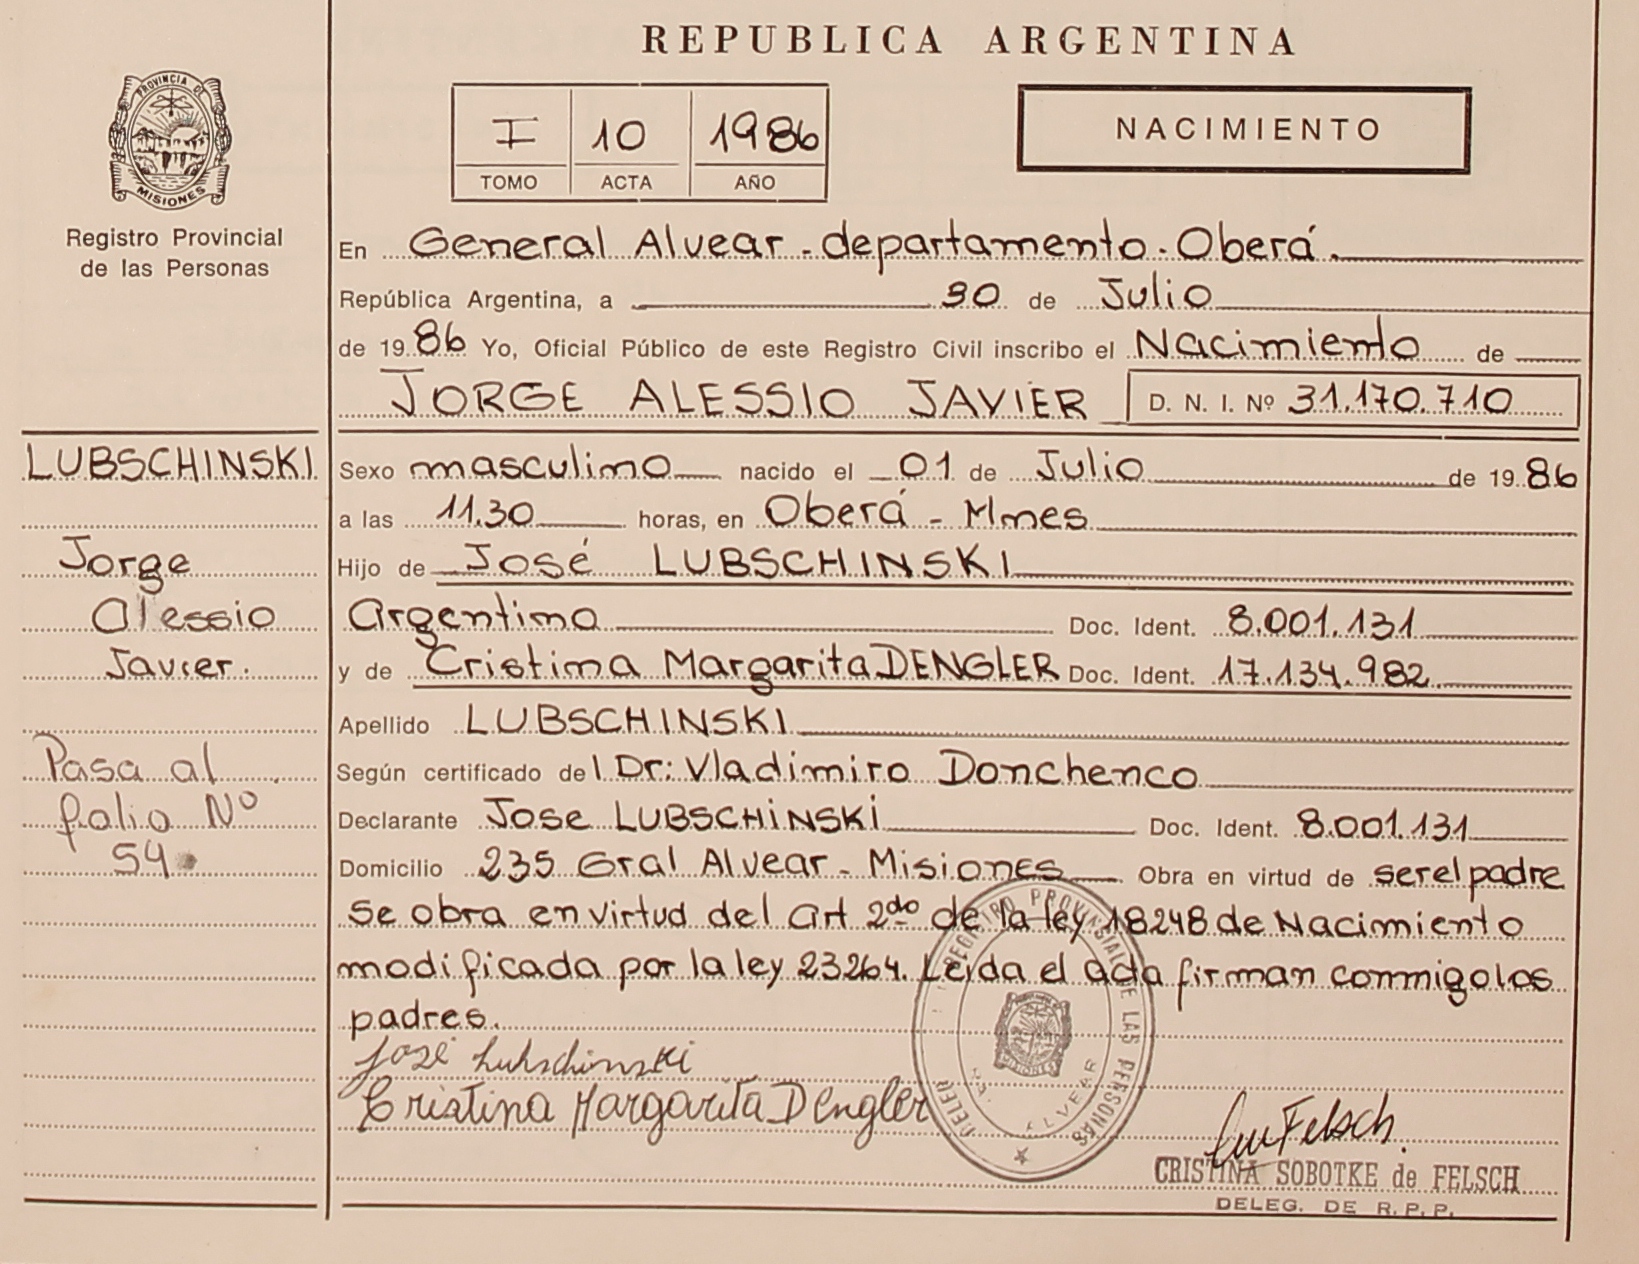 REPUBLICA ARGENTINA
PROVINCIA DE
MISIONES
Registro Provincial
de las Personas
I 10 1986
TOMO ACTA AÑO
NACIMIENTO
En General Alvear - departamento - Oberá.
República Argentina, a 30 de Julio
de 1986 Yo, Oficial Público de este Registro Civil inscribo el Nacimiento de
JORGE ALESSIO JAVIER D. N. I. Nº 31.170.710
LUBSCHINSKI
Jorge
Alessio
Javier.
Pasa al
folio Nº
54
Sexo masculino nacido el 01 de Julio de 1986
a las 11.30 horas, en Oberá - Mnes
Hijo de José LUBSCHINSKI
Argentino Doc. Ident. 8.001.131
y de Cristina Margarita DENGLER Doc. Ident. 17.134.982
Apellido LUBSCHINSKI
Según certificado del Dr: Vladimiro Donchenco
Declarante Jose LUBSCHINSKI Doc. Ident. 8.001.131
Domicilio 235 Gral Alvear - Misiones Obra en virtud de ser el padre
Se obra en virtud del art 2do de la ley 18248 de Nacimiento
modificada por la ley 23264. Leida el acta firman conmigo los
padres.
José Lubschinski
Cristina Margarita Dengler
REGISTRO PROVINSIAL DE LAS PERSONAS
ALVEAR
Felsch
CRISTINA SOBOTKE de FELSCH
DELEG. DE R. P. P.